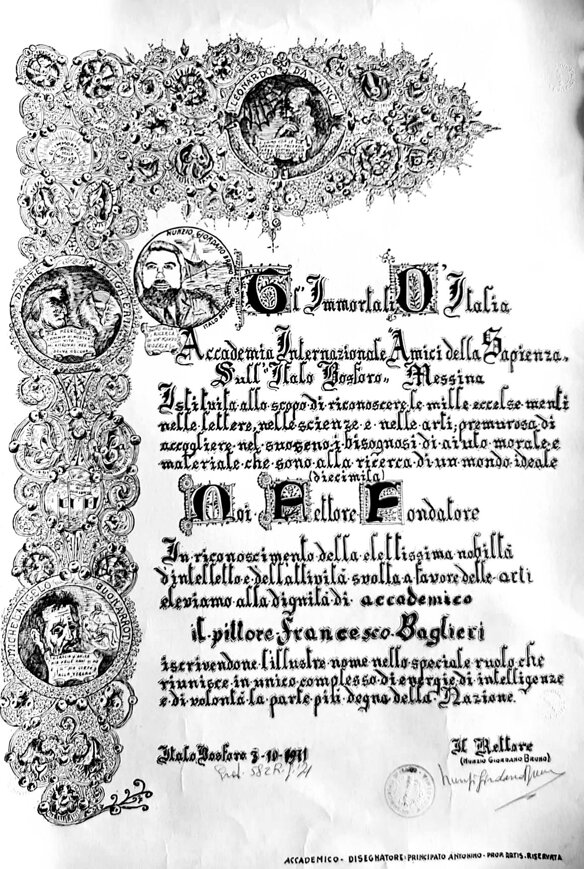 LEONARDO DA VINCI
NUNZIO GIORDANO
DANTE ALIGHIERI
MICHELANGELO BUONARROTI
Gl' Immortali D'Italia
Accademia Internazionale "Amici della Sapienza"
Sull'"Italo Bosforo" Messina
Istituita allo scopo di riconoscere le mille eccelse menti
(diecimila)
nelle lettere, nelle scienze e nelle arti; premurosa di
accogliere nel suo seno i bisognosi di aiuto morale e
materiale che sono alla ricerca di un mondo ideale
Noi Rettore Fondatore
In riconoscimento della elettissima nobiltà
d'intelletto e dell'attività svolta a favore delle arti
eleviamo alla dignità di accademico
il pittore Francesco Baglieri
iscrivendone l'illustre nome nello speciale ruolo che
riunisce in unico complesso di energie di intelligenze
e di volontà la parte più degna della Nazione.
Italo Bosforo 3-10-1971
Il Rettore
(NUNZIO GIORDANO BRUNO)
ACCADEMICO - DISEGNATORE: PRINCIPATO ANTONINO - PROP. ARTIS. RISERVATA